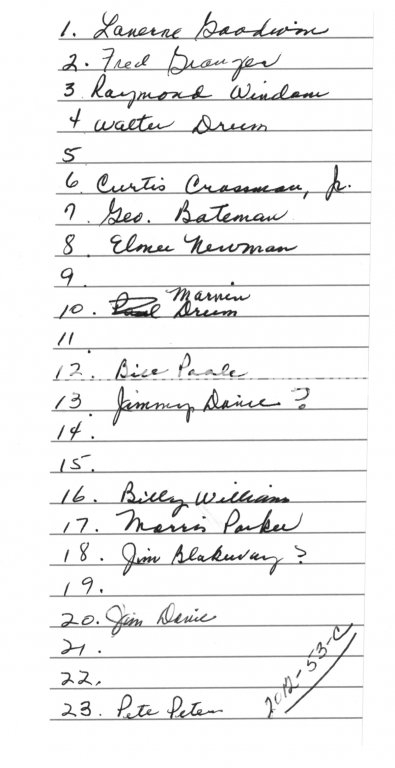 1. Laverne Goodwin
2. Fred Granger
3 Raymond Windom
4 Walter Drum
5
6. Curtis Crossman, Jr.
7. Geo. Bateman
8. Elmer Newman
9.
Marvin
10. Paul Drum
11.
12. Bill Poole
13 Jimmy Davis ?
14.
15.
16. Billy Williams
17. Morris Parker
18. Jim Blakeway ?
19.
20. Jim Davis
21.
22.
23. Pete Peters
2012-53-C